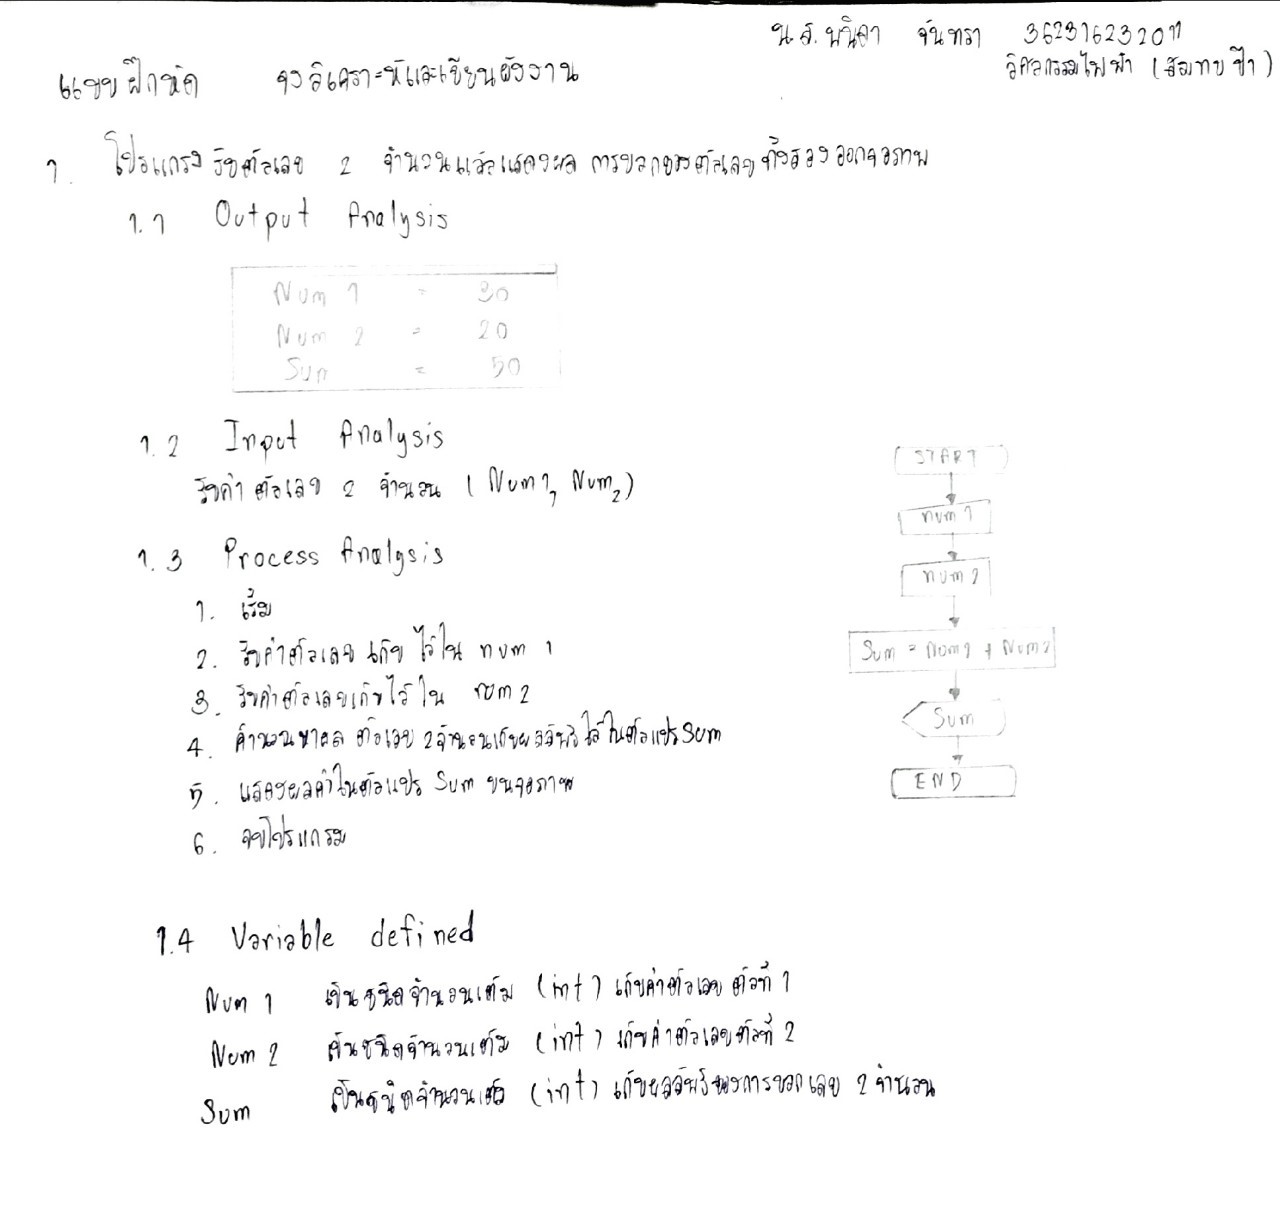 น.ส. พนิดา จันทรา 362316232011
วิศวกรรมไฟฟ้า (สมทบ ป1)
แบบฝึกหัด จงวิเคราะห์และเขียนผังงาน
1. โปรแกรมรับตัวเลข 2 จำนวนแล้วแสดงผล การบวกของตัวเลขทั้งสองออกจอภาพ
1.1 Output Analysis
Num 1 = 30
Num 2 = 20
Sum = 50
1.2 Input Analysis
รับค่า ตัวเลข 2 จำนวน ( Num1, Num2 )
1.3 Process Analysis
1. เริ่ม
2. รับค่าตัวเลข เก็บ ไว้ใน num 1
3. รับค่าตัวเลขเก็บไว้ ใน num 2
4. คำนวนหาผล ตัวเลข 2 จำนวนเก็บผลลัพธ์ ไว้ในตัวแปร Sum
5. แสดงผลค่าในตัวแปร Sum บนจอภาพ
6. จบโปรแกรม
START
num 1
num 2
Sum = Num1 + Num2
Sum
END
1.4 Variable defined
Num 1 เป็นชนิดจำนวนเต็ม (int) เก็บค่าตัวเลข ตัวที่ 1
Num 2 เป็นชนิดจำนวนเต็ม (int) เก็บค่าตัวเลขตัวที่ 2
Sum เป็นชนิดจำนวนเต็ม (int) เก็บผลลัพธ์ของการบวกเลข 2 จำนวน